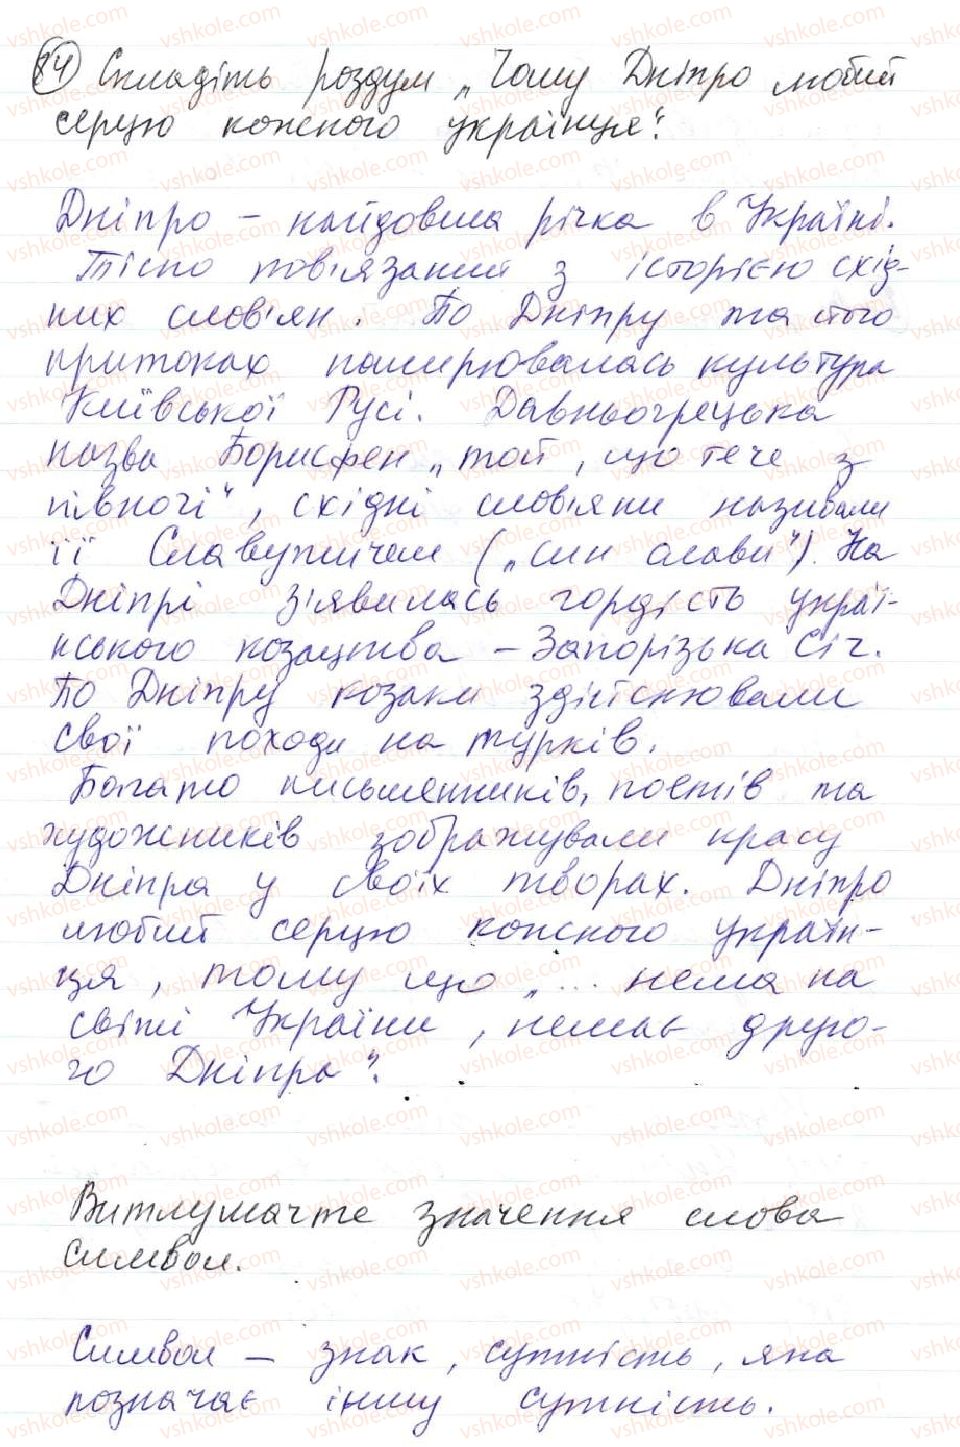 84 Складіть роздум „Чому Дніпро любий
серцю кожного українця".
Дніпро – найдовша річка в Україні.
Тісно пов'язаний з історією схід-
них слов'ян. По Дніпру та його
притоках поширювалась культура
Київської Русі. Давньогрецька
назва Борисфен „той, що тече з
півночі", східні слов'яни називали
її Славутичем („син слави"). На
Дніпрі з'явилась гордість украї-
нського козацтва – Запорізька Січ.
По Дніпру козаки здійснювали
свої походи на турків.
Багато письменників, поетів та
художників зображували красу
Дніпра у своїх творах. Дніпро
любий серцю кожного україн-
ця, тому що „... нема на
світі України, немає друго-
го Дніпра".
Витлумачте значення слова
символ.
Символ – знак, сутність, яка
позначає іншу сутність.